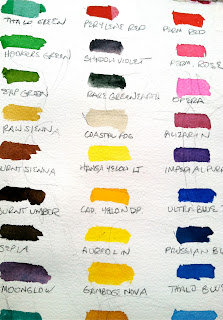 THALO GREEN PERYLENE RED PERM. RED
HOOKERS GREEN SHADOW VIOLET PERM. ROSE
SAP GREEN RARE GREEN EARTH OPERA
RAW SIENNA COASTAL FOG ALIZARIN
BURNT SIENNA HANSA YELLOW LT IMPERIAL PURP
BURNT UMBER CAD. YELLOW DP. ULTRA BLUE
SEPIA AUREOLIN PRUSSIAN BL
MOONGLOW GAMBOGE NOVA THALO BLU